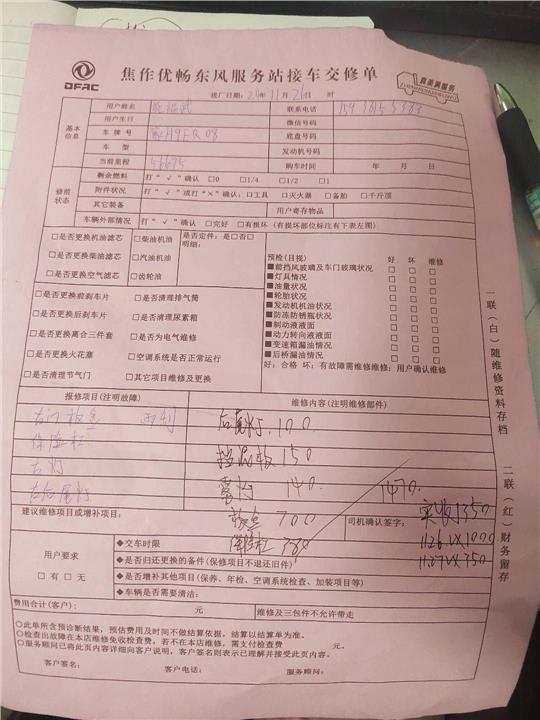 DFAC
焦作优畅东风服务站接车交修单
真美满服务
ZHENMEIMANFUWU
接厂日期：24年11月26日 时
基本信息
用户姓名 联系电话
用户生日 微信号码
车牌号 底盘号码
车型 发动机号码
当前里程 56675 购车时间 年 月 日
修前状态
剩余燃料 打“√”确认 □0 □1/4 □1/2 □1
附件状况 打“√”或打“×”确认：□工具 □灭火器 □备胎 □千斤顶
其它装备 用户寄存物品
车辆外部情况 打“√”确认 □完好 □有损坏（有损坏部位标注有下表左图）
□是否更换机油滤芯 □柴油机油 是否定件：是□否□
明细：
□是否更换柴油滤芯 □汽油机油
□是否更换空气滤芯 □齿轮油
□是否更换前刹车片 □是否清理排气筒
□是否更换后刹车片 □是否清理尿素箱
□是否更换离合三件套 □是否为电气维修
□是否更换火花塞 □空调系统是否正常运行
□是否清理节气门 □其它项目维修及更换
预检(目视) 好 坏 维修
■前挡风玻璃及车门玻璃状况 □ □ □
■灯具情况 □ □ □
■油量状况 □ □ □
■轮胎状况 □ □ □
■发动机机油状况 □ □ □
■防冻防锈瓶状况 □ □ □
■制动液液面 □ □ □
■动力转向液液面 □ □ □
■变速箱漏油情况 □ □ □
■后桥漏油情况 □ □ □
好：合格 坏：有故障需维修维修：用户确认维修
报修项目(注明故障) 维修内容(注明维修部件)
右门 后尾灯 100
保险杠 挡泥板 150
右灯 雾灯 140 1470
右后尾灯 700
建议维修项目或增补项目： 司机确认签字： 实收1350
保险杠 380
11.26 VX 1000
11.27 VX 350
用户要求
□有 □无
◆交车时限
◆是否归还更换的备件(保修项目不退还旧件)
◆是否增补其他项目(保养、年检、空调系统检查、加装项目等)
◆车辆是否需要清洁：
费用合计(客户)： 元 维修及三包件不允许带走
○此单所含预诊断结果，预估费用及时间不做结算依据，结算以结算单为准。
○检查出故障在本店维修免收检查费，若不在本店维修，需支付检查费 元。
○服务顾问已将此页内容详细向客户说明，客户签名则表示已理解并接受此页内容。
客户签名： 客户电话： 服务顾问：
一联（白）随维修资料存档
二联（红）财务留存